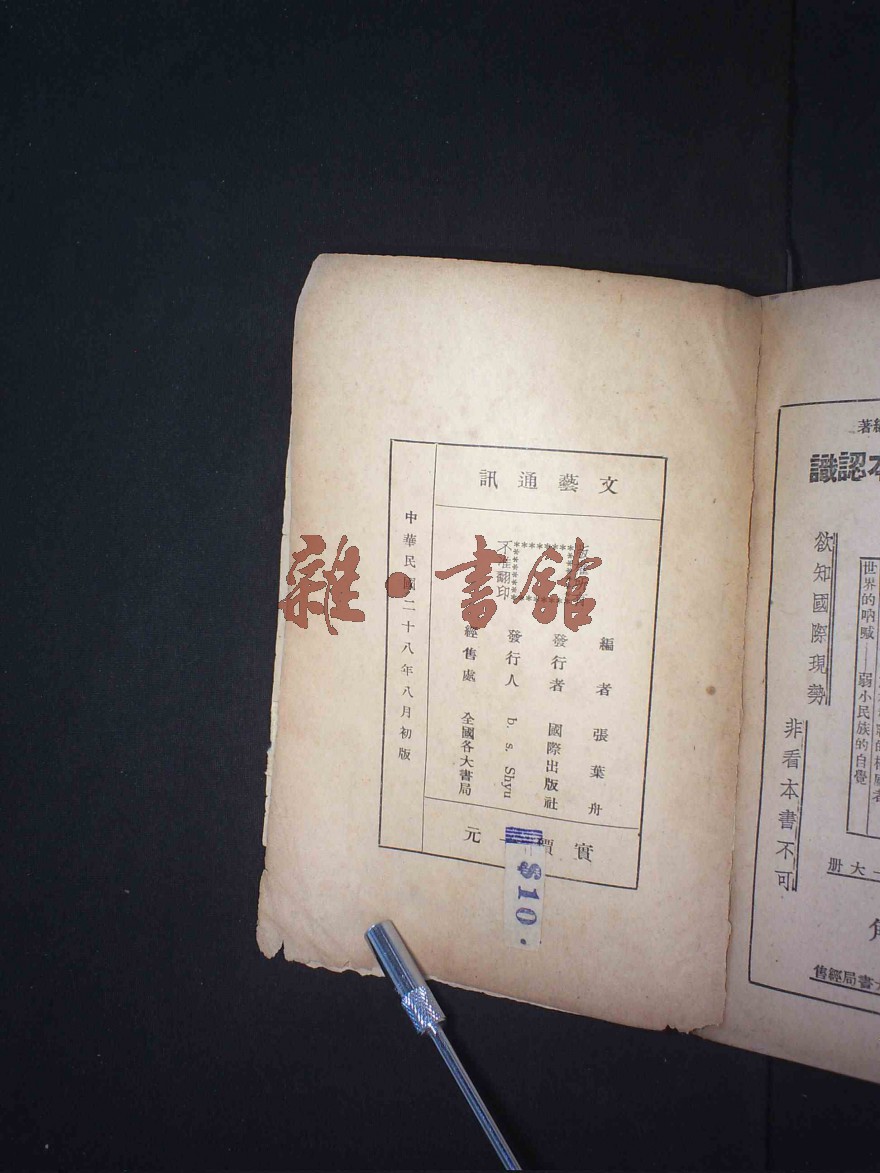 文藝通訊
不准翻印
編者 張葉舟
發行者 國際出版社
發行人 b. s. Shyu
經售處 全國各大書局
實價 元
$10.
中華民國二十八年八月初版
雜·書館
編著
本認識
欲知國際現勢
非看本書不可
世界的吶喊——弱小民族的自覺
一大册
大書局經售